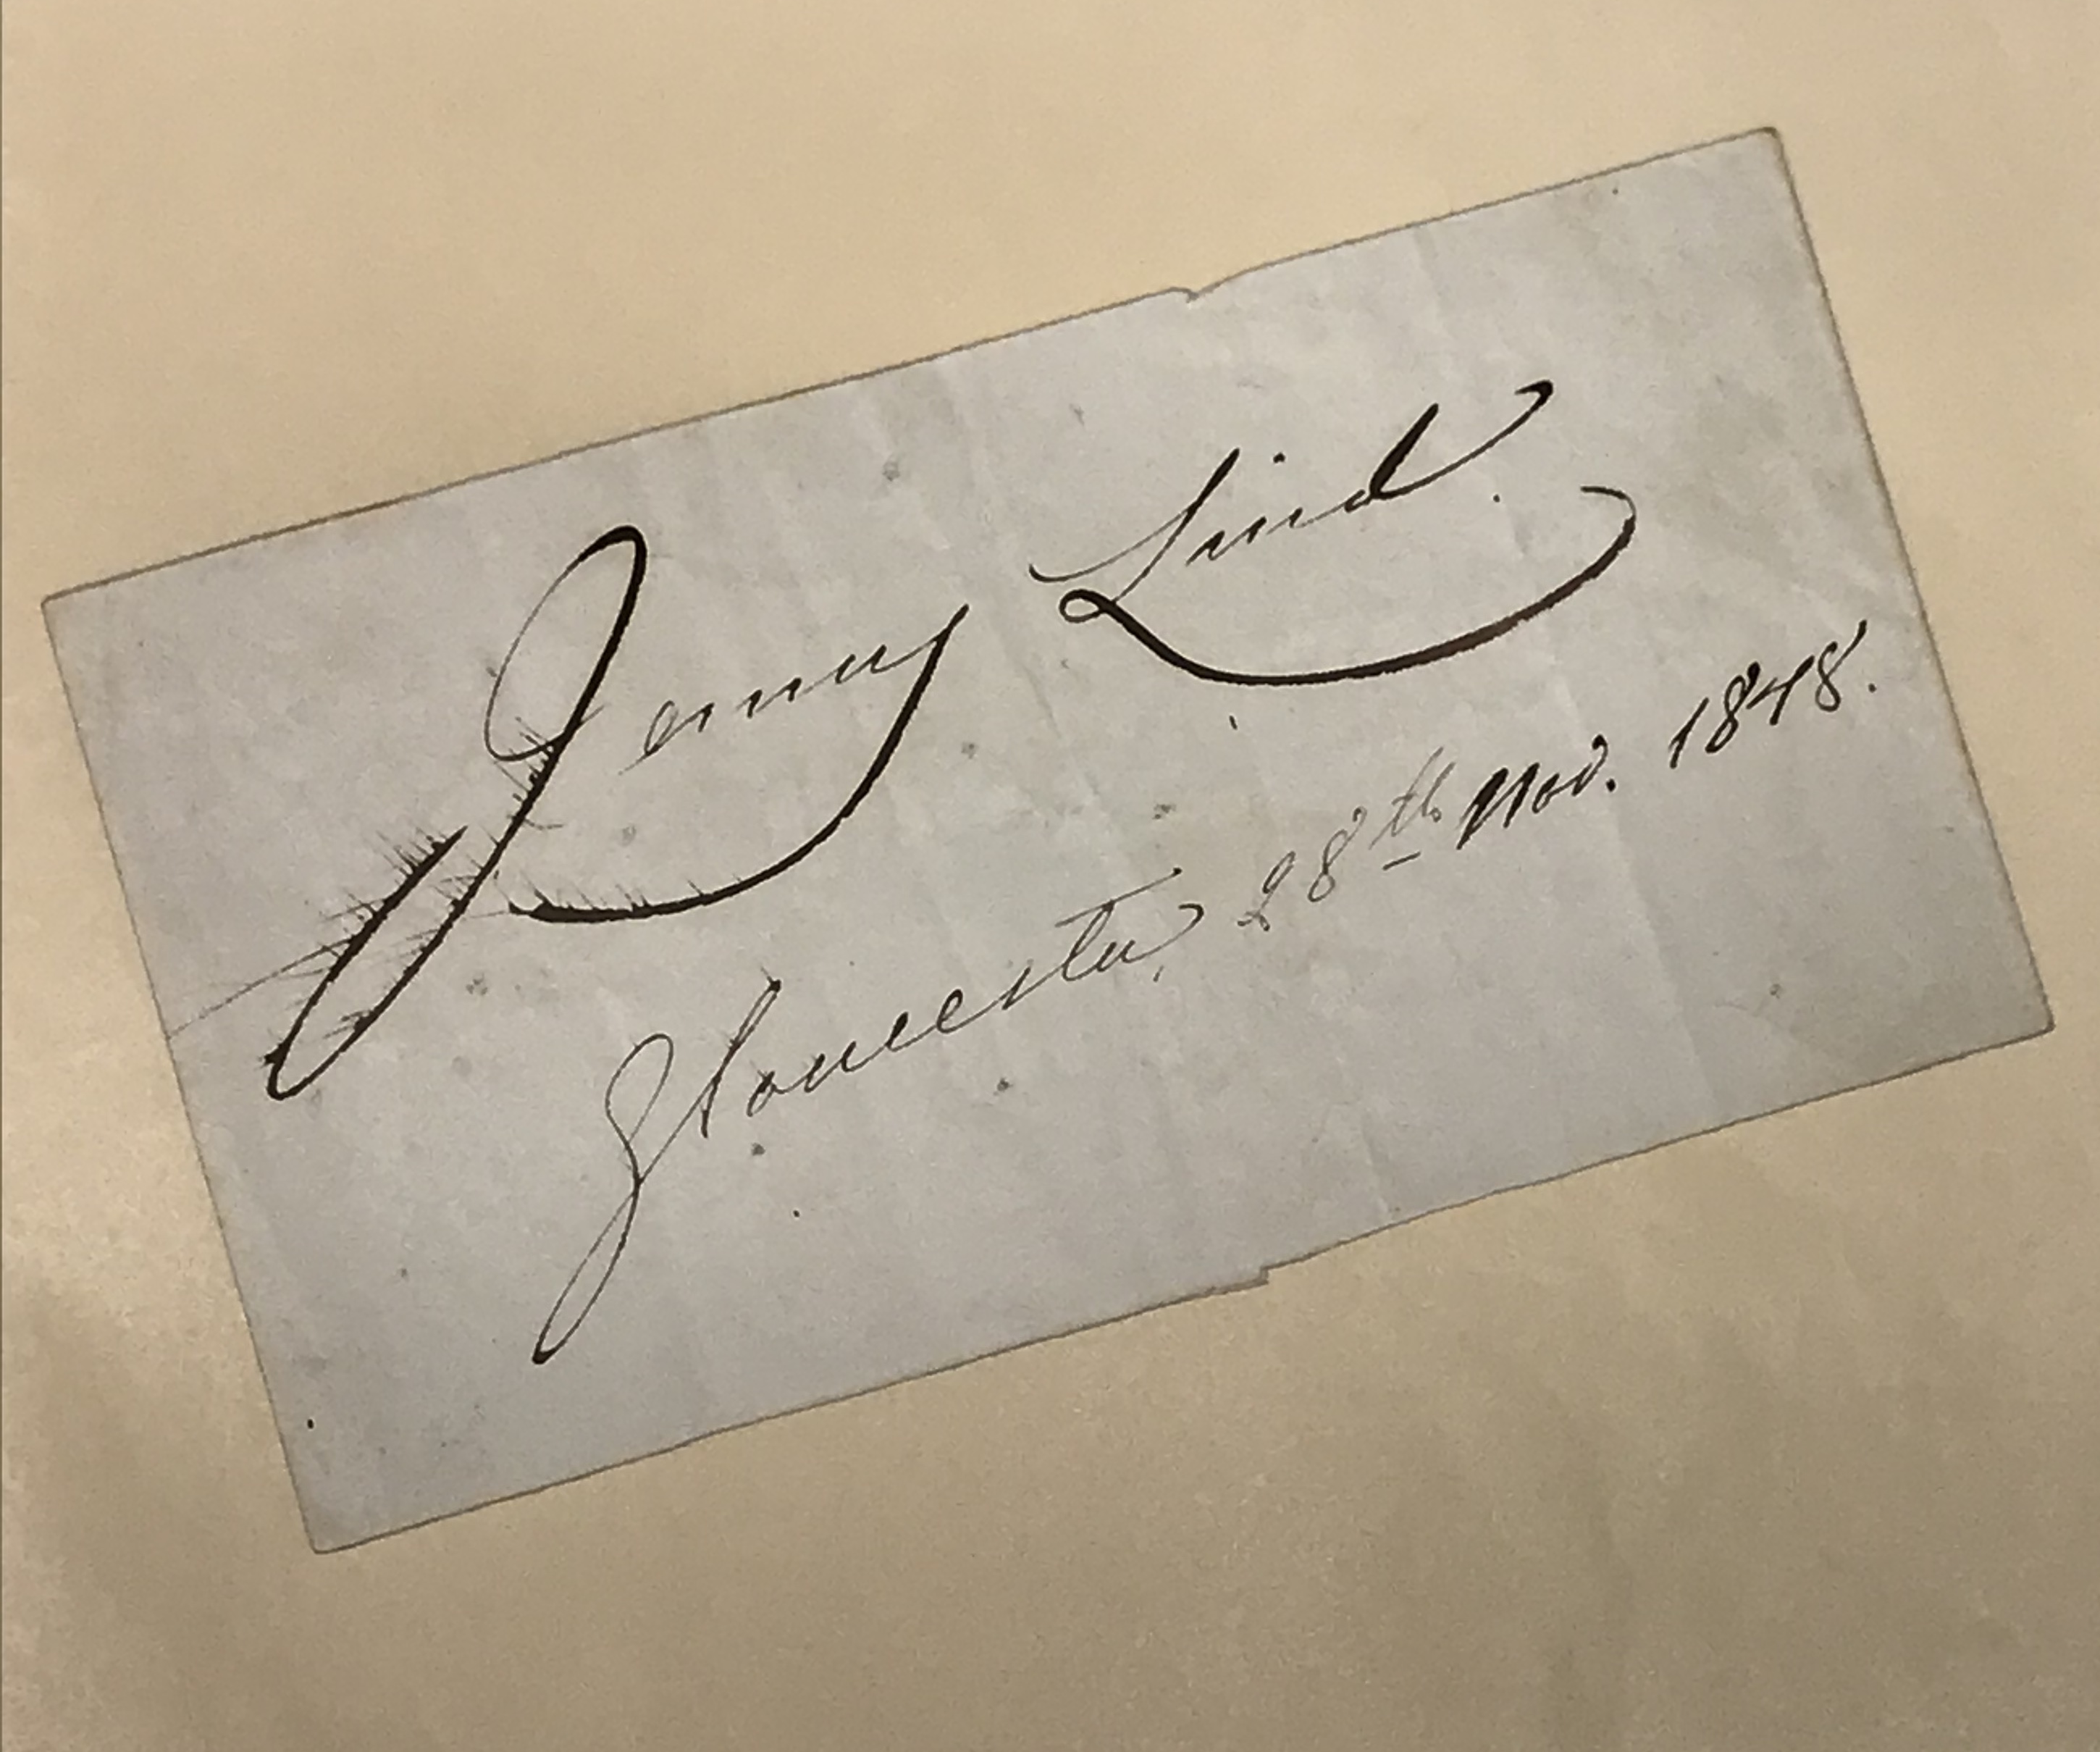 Jenny Lind
Gloucester, 28th Nov. 1848.